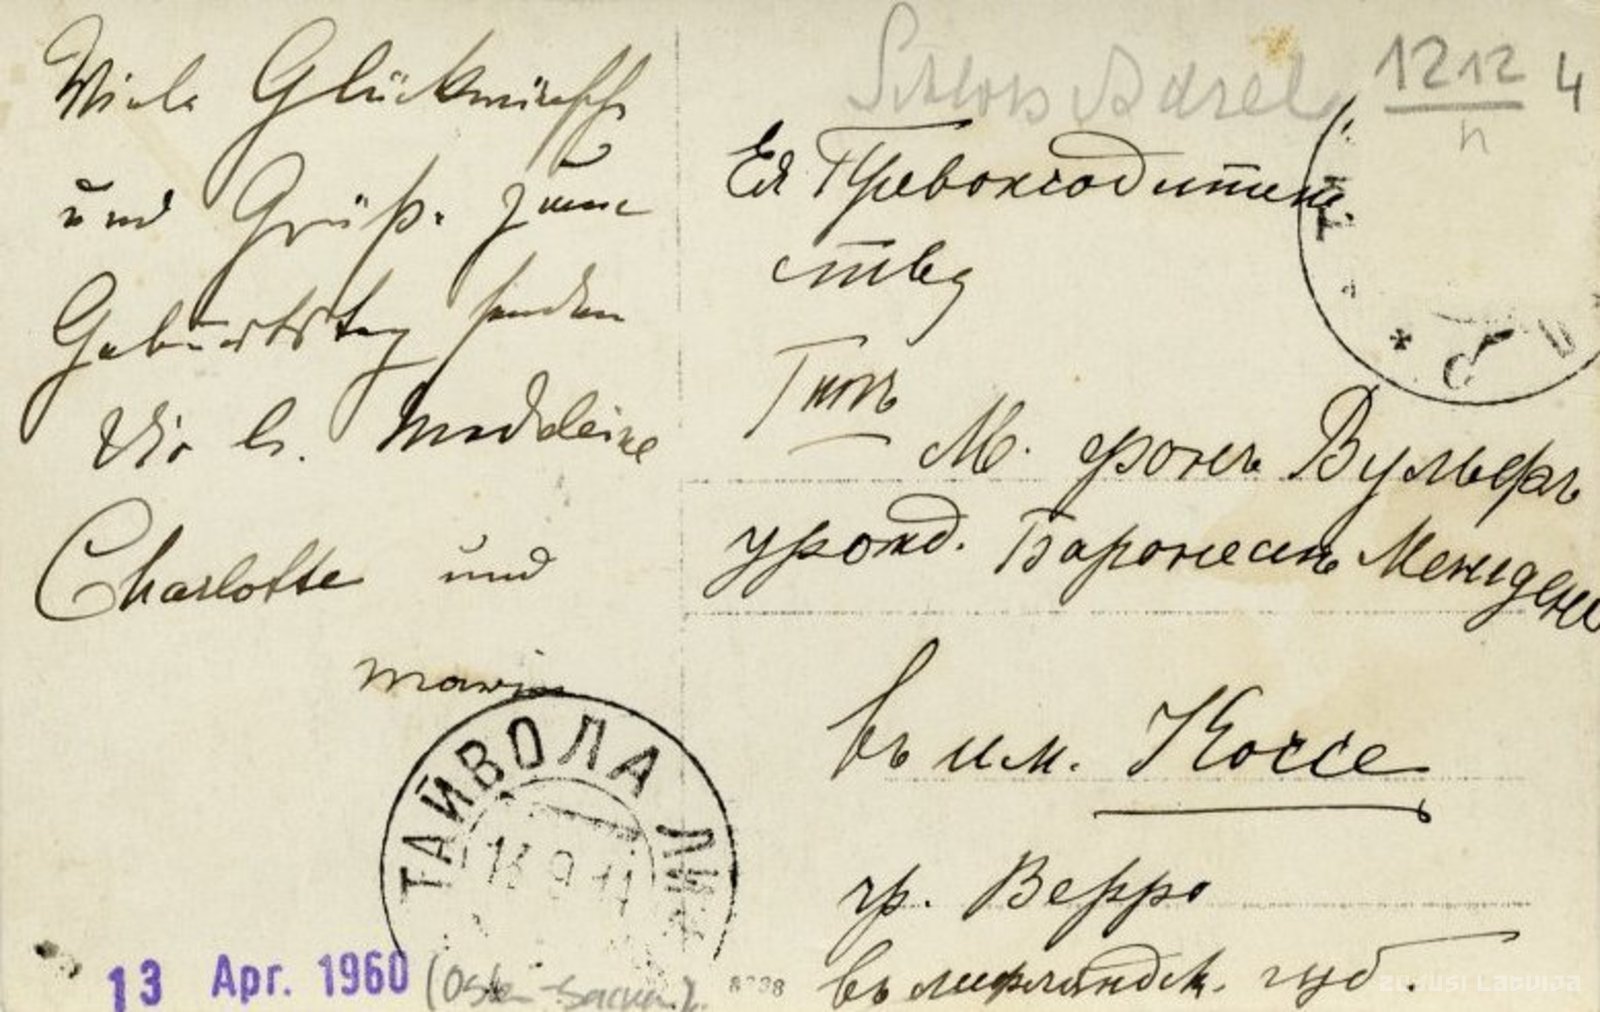 Viele Glückwünsche
und Grüße zum
Geburtstag senden
Madeleine
Charlotte und
Marie
Schloss
1212 4
n
Ея Превосходитель
ству
Гжѣ
М. фонъ Вульфъ
урожд. Баронессѣ Менгденъ
въ им. Коссе
гр. Верро
въ лифляндск. губ.
ТАЙВОЛА
13 9 11
13 Apr. 1960
(Osten-Sacken)
8738
ZUDUSI LATVIJA